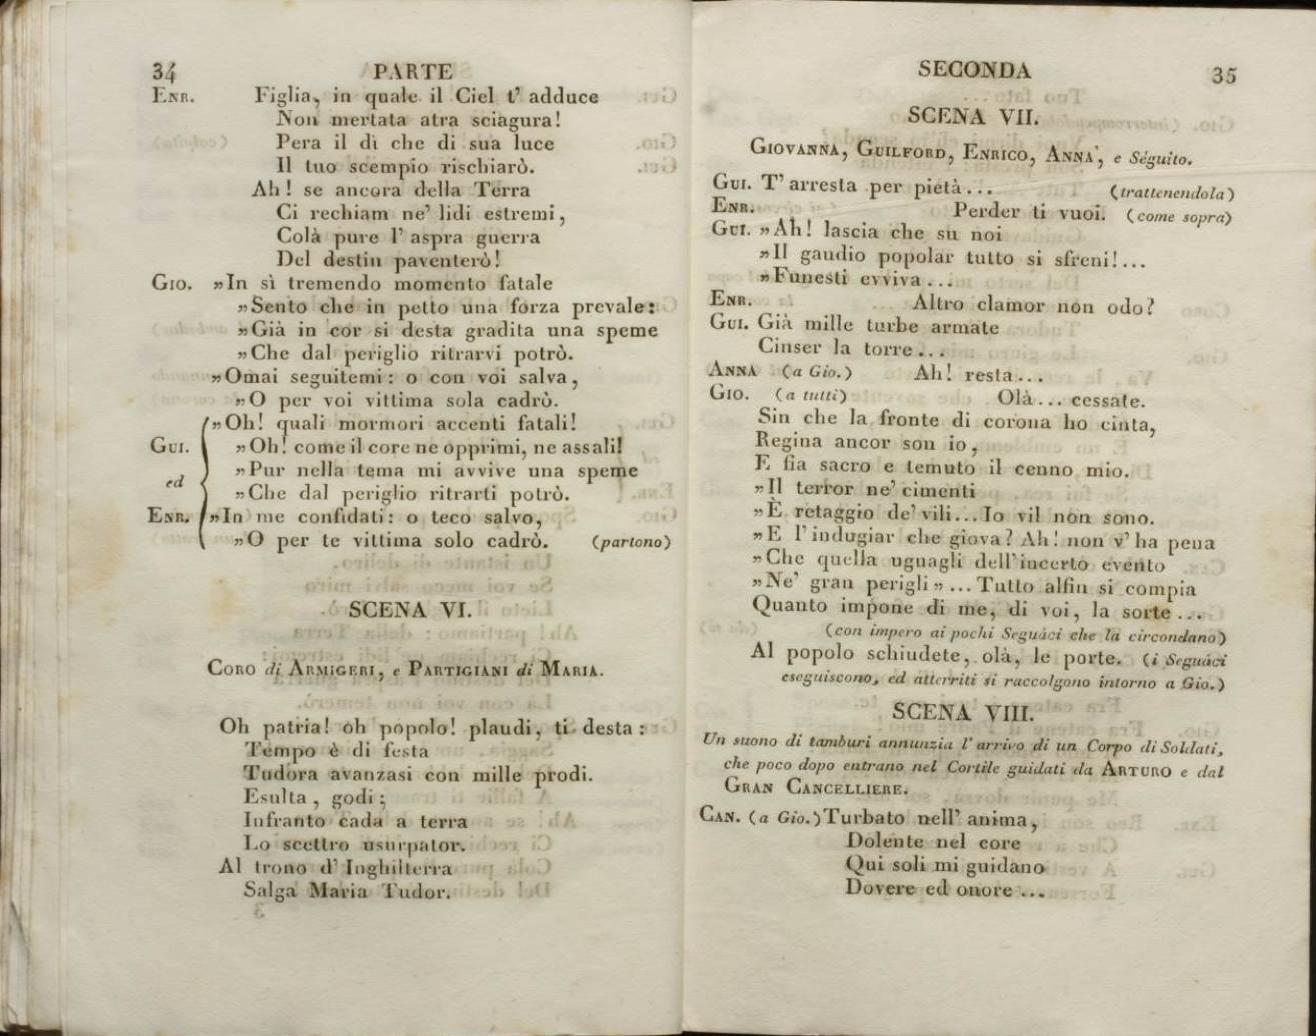 34 PARTE
ENR. Figlia, in quale il Ciel t' adduce
Non mertata atra sciagura!
Pera il dì che di sua luce
Il tuo scempio rischiarò.
Ah! se ancora della Terra
Ci rechiam ne' lidi estremi,
Colà pure l' aspra guerra
Del destin paventerò!
GIO. „In sì tremendo momento fatale
„Sento che in petto una forza prevale:
„Già in cor si desta gradita una speme
„Che dal periglio ritrarvi potrò.
„Omai seguitemi: o con voi salva,
„O per voi vittima sola cadrò.
„Oh! quali mormori accenti fatali!
GUI. „Oh! come il core ne opprimi, ne assali!
„Pur nella tema mi avvive una speme
ed
„Che dal periglio ritrarti potrò.
ENR. „In me confidati: o teco salvo,
„O per te vittima solo cadrò. (partono)
SCENA VI.
CORO di ARMIGERI, e PARTIGIANI di MARIA.
Oh patria! oh popolo! plaudi, ti desta:
Tempo è di festa
Tudora avanzasi con mille prodi.
Esulta, godi;
Infranto cada a terra
Lo scettro usurpator.
Al trono d' Inghilterra
Salga Maria Tudor.
3
SECONDA 35
SCENA VII.
GIOVANNA, GUILFORD, ENRICO, ANNA, e Séguito.
GUI. T' arresta per pietà... (trattenendola)
ENR. Perder ti vuoi. (come sopra)
GUI. „Ah! lascia che su noi
„Il gaudio popolar tutto si sfreni!...
„Funesti evviva...
ENR. Altro clamor non odo?
GUI. Già mille turbe armate
Cinser la torre...
ANNA (a Gio.) Ah! resta...
GIO. (a tutti) Olà... cessate.
Sin che la fronte di corona ho cinta,
Regina ancor son io,
E fia sacro e temuto il cenno mio.
„Il terror ne' cimenti
„È retaggio de' vili... Io vil non sono.
„E l' indugiar che giova? Ah! non v' ha pena
„Che quella uguagli dell' incerto evento
„Ne' gran perigli„... Tutto alfin si compia
Quanto impone di me, di voi, la sorte...
(con impero ai pochi Seguáci che la circondano)
Al popolo schiudete, olà, le porte. (i Seguáci
eseguiscono, ed atterriti si raccolgono intorno a Gio.)
SCENA VIII.
Un suono di tamburi annunzia l' arrivo di un Corpo di Soldati,
che poco dopo entrano nel Cortile guidati da ARTURO e dal
GRAN CANCELLIERE.
CAN. (a Gio.) Turbato nell' anima,
Dolente nel core
Qui soli mi guidano
Dovere ed onore...